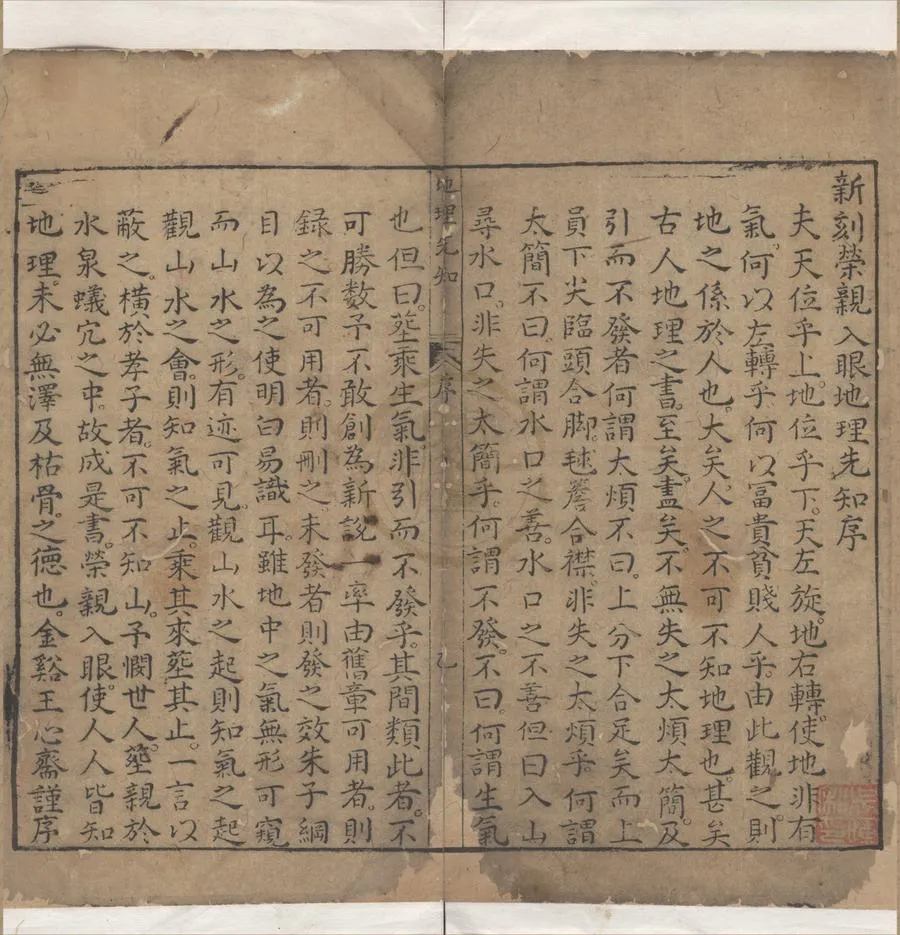 新刻榮親入眼地理先知序
夫天位乎上。地位乎下。天左旋。地右轉。使地非有
氣。何以左轉乎。何以富貴貧賤人乎。由此觀之。則
地之係於人也。大矣。人之不可不知地理也。甚矣
古人地理之書。至矣。盡矣。不無失之太煩太簡。及
引而不發者。何謂太煩。不曰。上分下合足矣。而上
員下尖。臨頭合脚。毬簷合襟。非失之太煩乎。何謂
太簡。不曰。何謂水口之善。水口之不善。但曰入山
尋水口。非失之太簡乎。何謂不發。不曰。何謂生氣
地理先知
序
乙
也。但曰。塟乘生氣。非引而不發乎。其間類此者。不
可勝数。予不敢創為新說。一率由舊章。可用者。則
録之。不可用者。則刪之。未發者則發之。效朱子綱
目以為之。使明白易識耳。雖地中之氣無形可窺
而山水之形。有迹可見。觀山水之起。則知氣之起
觀山水之會。則知氣之止。乘其來。塟其止。一言以
蔽之。横於孝子者。不可不知山。予憫世人。塟親於
水泉蟻冗之中。故成是書。榮親入眼。使人人皆知
地理。未必無澤及枯骨。之德也。金谿王心齋謹序